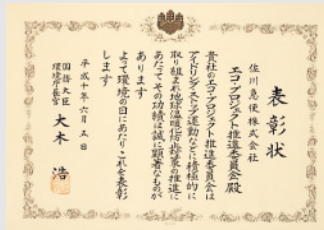 表彰状
佐川急便株式会社
エコ・プロジェクト推進委員会殿
貴社のエコ・プロジェクト推進委員会は
アイドリング・ストップ運動などに積極的に
取り組まれ地球温暖化防止対策の推進に
あたってその功績は誠に顕著なものが
あります
よって環境の日にあたりこれを表彰
します
平成十年六月五日
国務大臣
環境庁長官
大木 浩